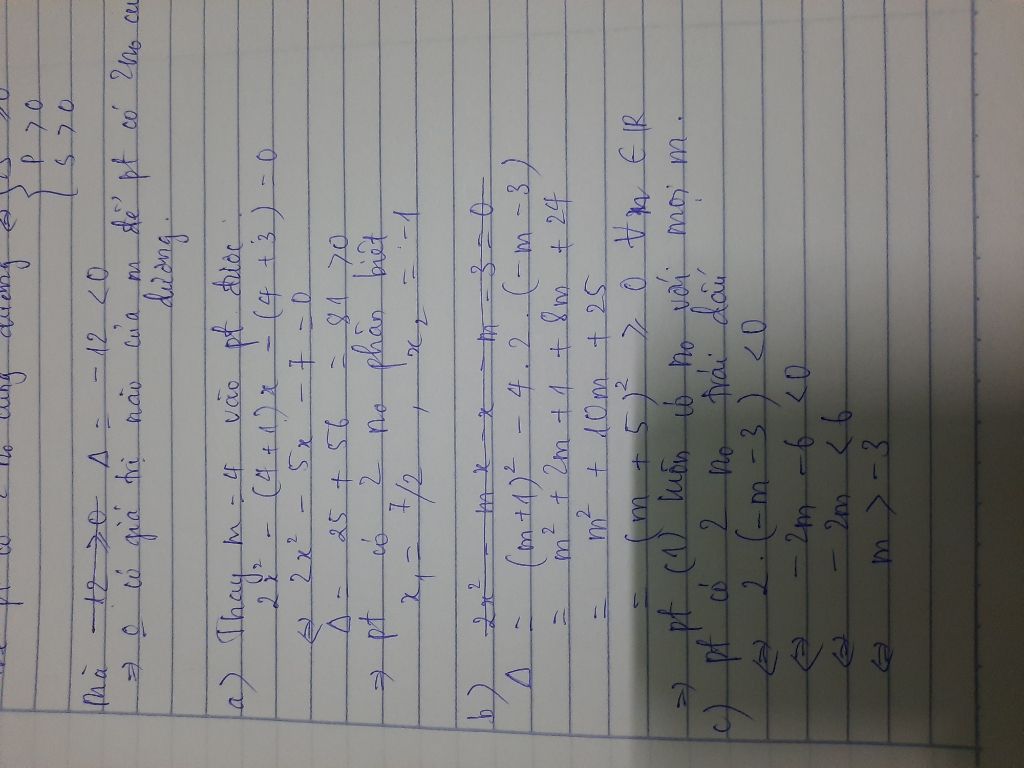 pt có 2 no cùng dương ⇔ { Δ ≥ 0
P > 0
S > 0
Mà -12 ≥ 0 Δ = -12 < 0
⇒ 0 có giá trị nào của m để pt có 2 no
dương.
a) Thay m = 4 vào pt được
2x² - (4+1)x - (4+3) = 0
⇔ 2x² - 5x - 7 = 0
Δ = 25 + 56 = 81 > 0
⇒ pt có 2 no phân biệt
x₁ = 7/2 , x₂ = -1
b) 2x² - mx - x - m - 3 = 0
Δ = (m+1)² - 4.2.(-m-3)
= m² + 2m + 1 + 8m + 24
= m² + 10m + 25
= (m + 5)² ≥ 0 ∀m ∈ R
⇒ pt (1) luôn có no với mọi m.
c) pt có 2 no trái dấu
⇔ 2.(-m-3) < 0
⇔ -2m - 6 < 0
⇔ -2m < 6
⇔ m > -3